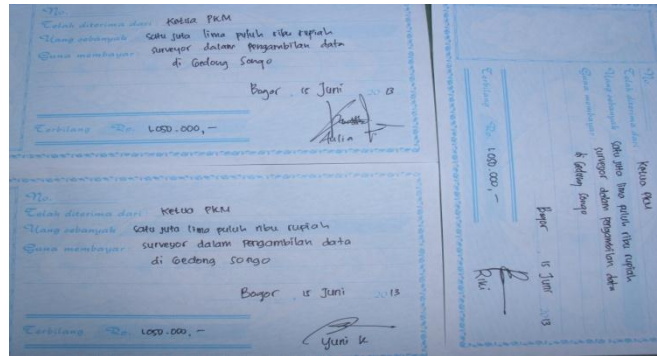 No.
Telah diterima dari Ketua PKM
Uang sebanyak satu juta lima puluh ribu rupiah
Guna membayar surveyor dalam pengambilan data
di Gedong Songo
Bogor 15 Juni 2013
Terbilang Rp. 1.050.000,-
Aulia
No.
Telah diterima dari Ketua PKM
Uang sebanyak satu juta lima puluh ribu rupiah
Guna membayar surveyor dalam pengambilan data
di Gedong Songo
Bogor 15 Juni 2013
Terbilang Rp. 1.050.000,-
Yuni K
No.
Telah diterima dari Ketua PKM
Uang sebanyak satu juta lima puluh ribu rupiah
Guna membayar surveyor dalam pengambilan data
di Gedong Songo
Bogor 15 Juni 2013
Terbilang Rp. 1.050.000,-
Riki